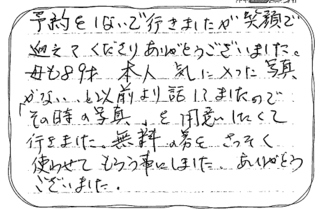 予約をしないで行きましたが笑顔で
迎えてくださりありがとうございました。
母も89才 本人 気に入った写真
がない、と以前より話してましたので
「その時の写真」を用意したくて
行きました。無料の券をさっそく
使わせてもらう事にしました。ありがとう
ございました。